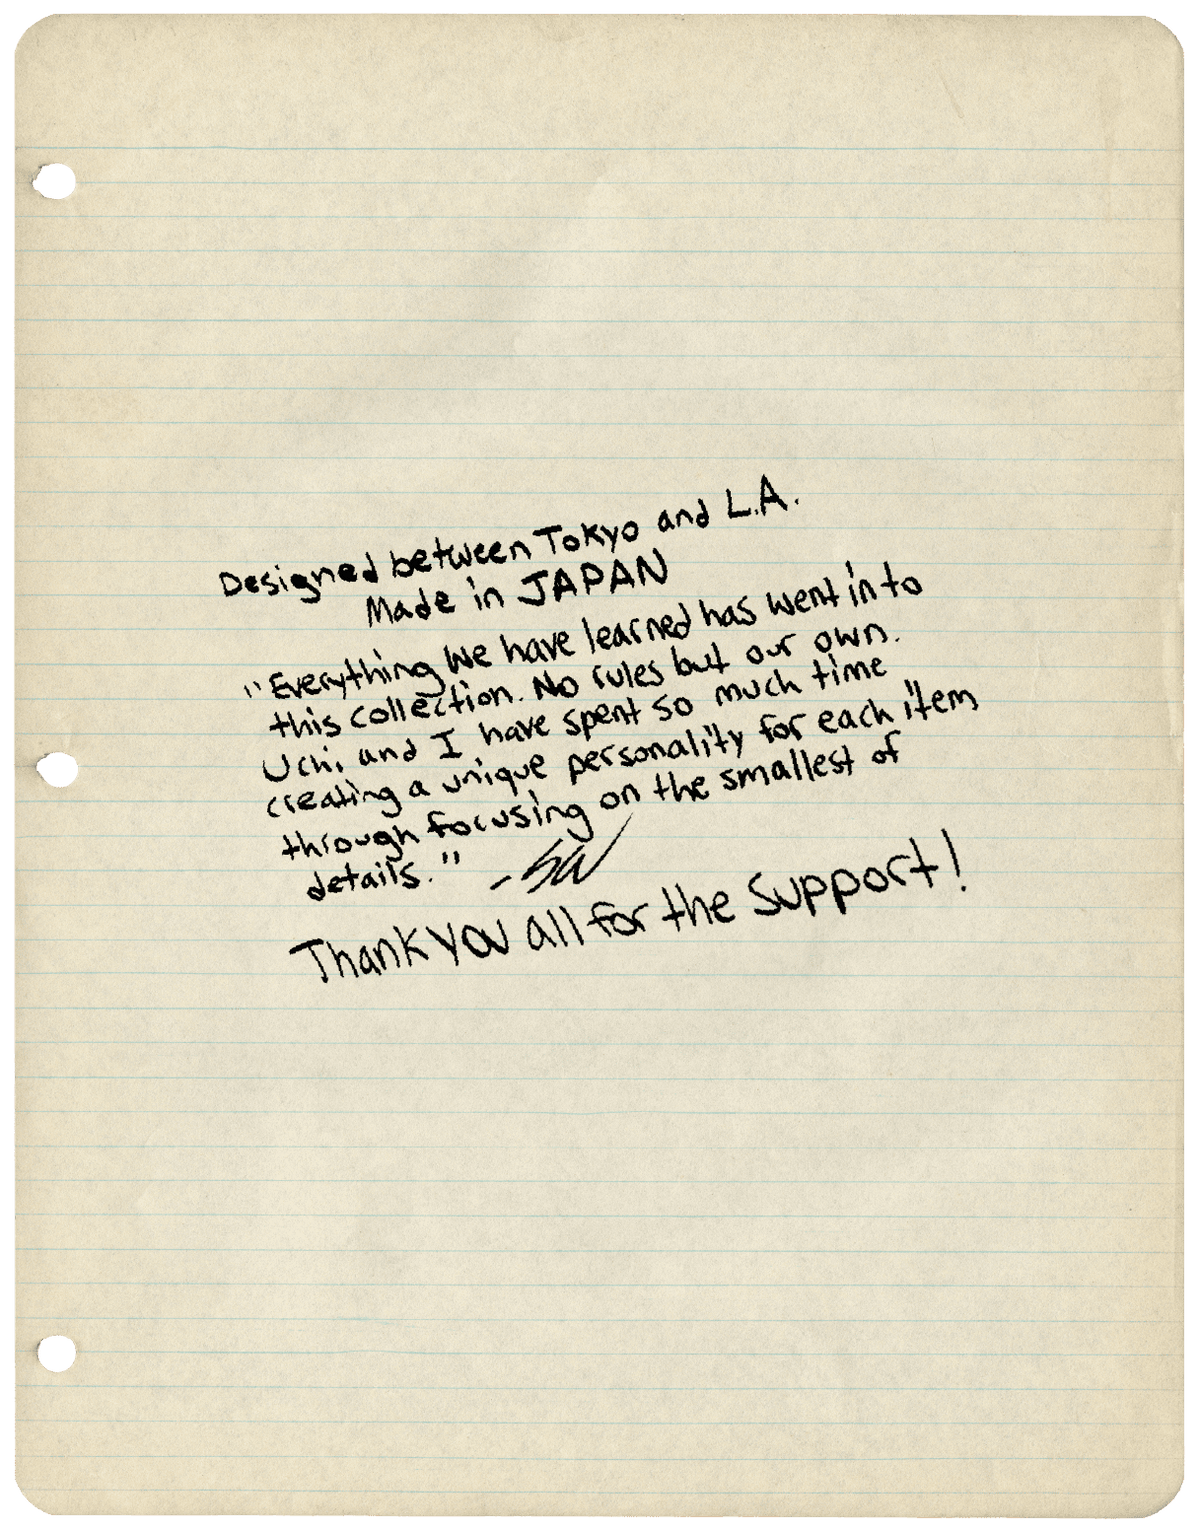 Designed between Tokyo and L.A.
Made in JAPAN
"Everything We have learned has went in to
this collection. No rules but our own.
Uchi and I have spent so much time
creating a unique personality for each item
through focusing on the smallest of
details." - SW
Thank you all for the support!